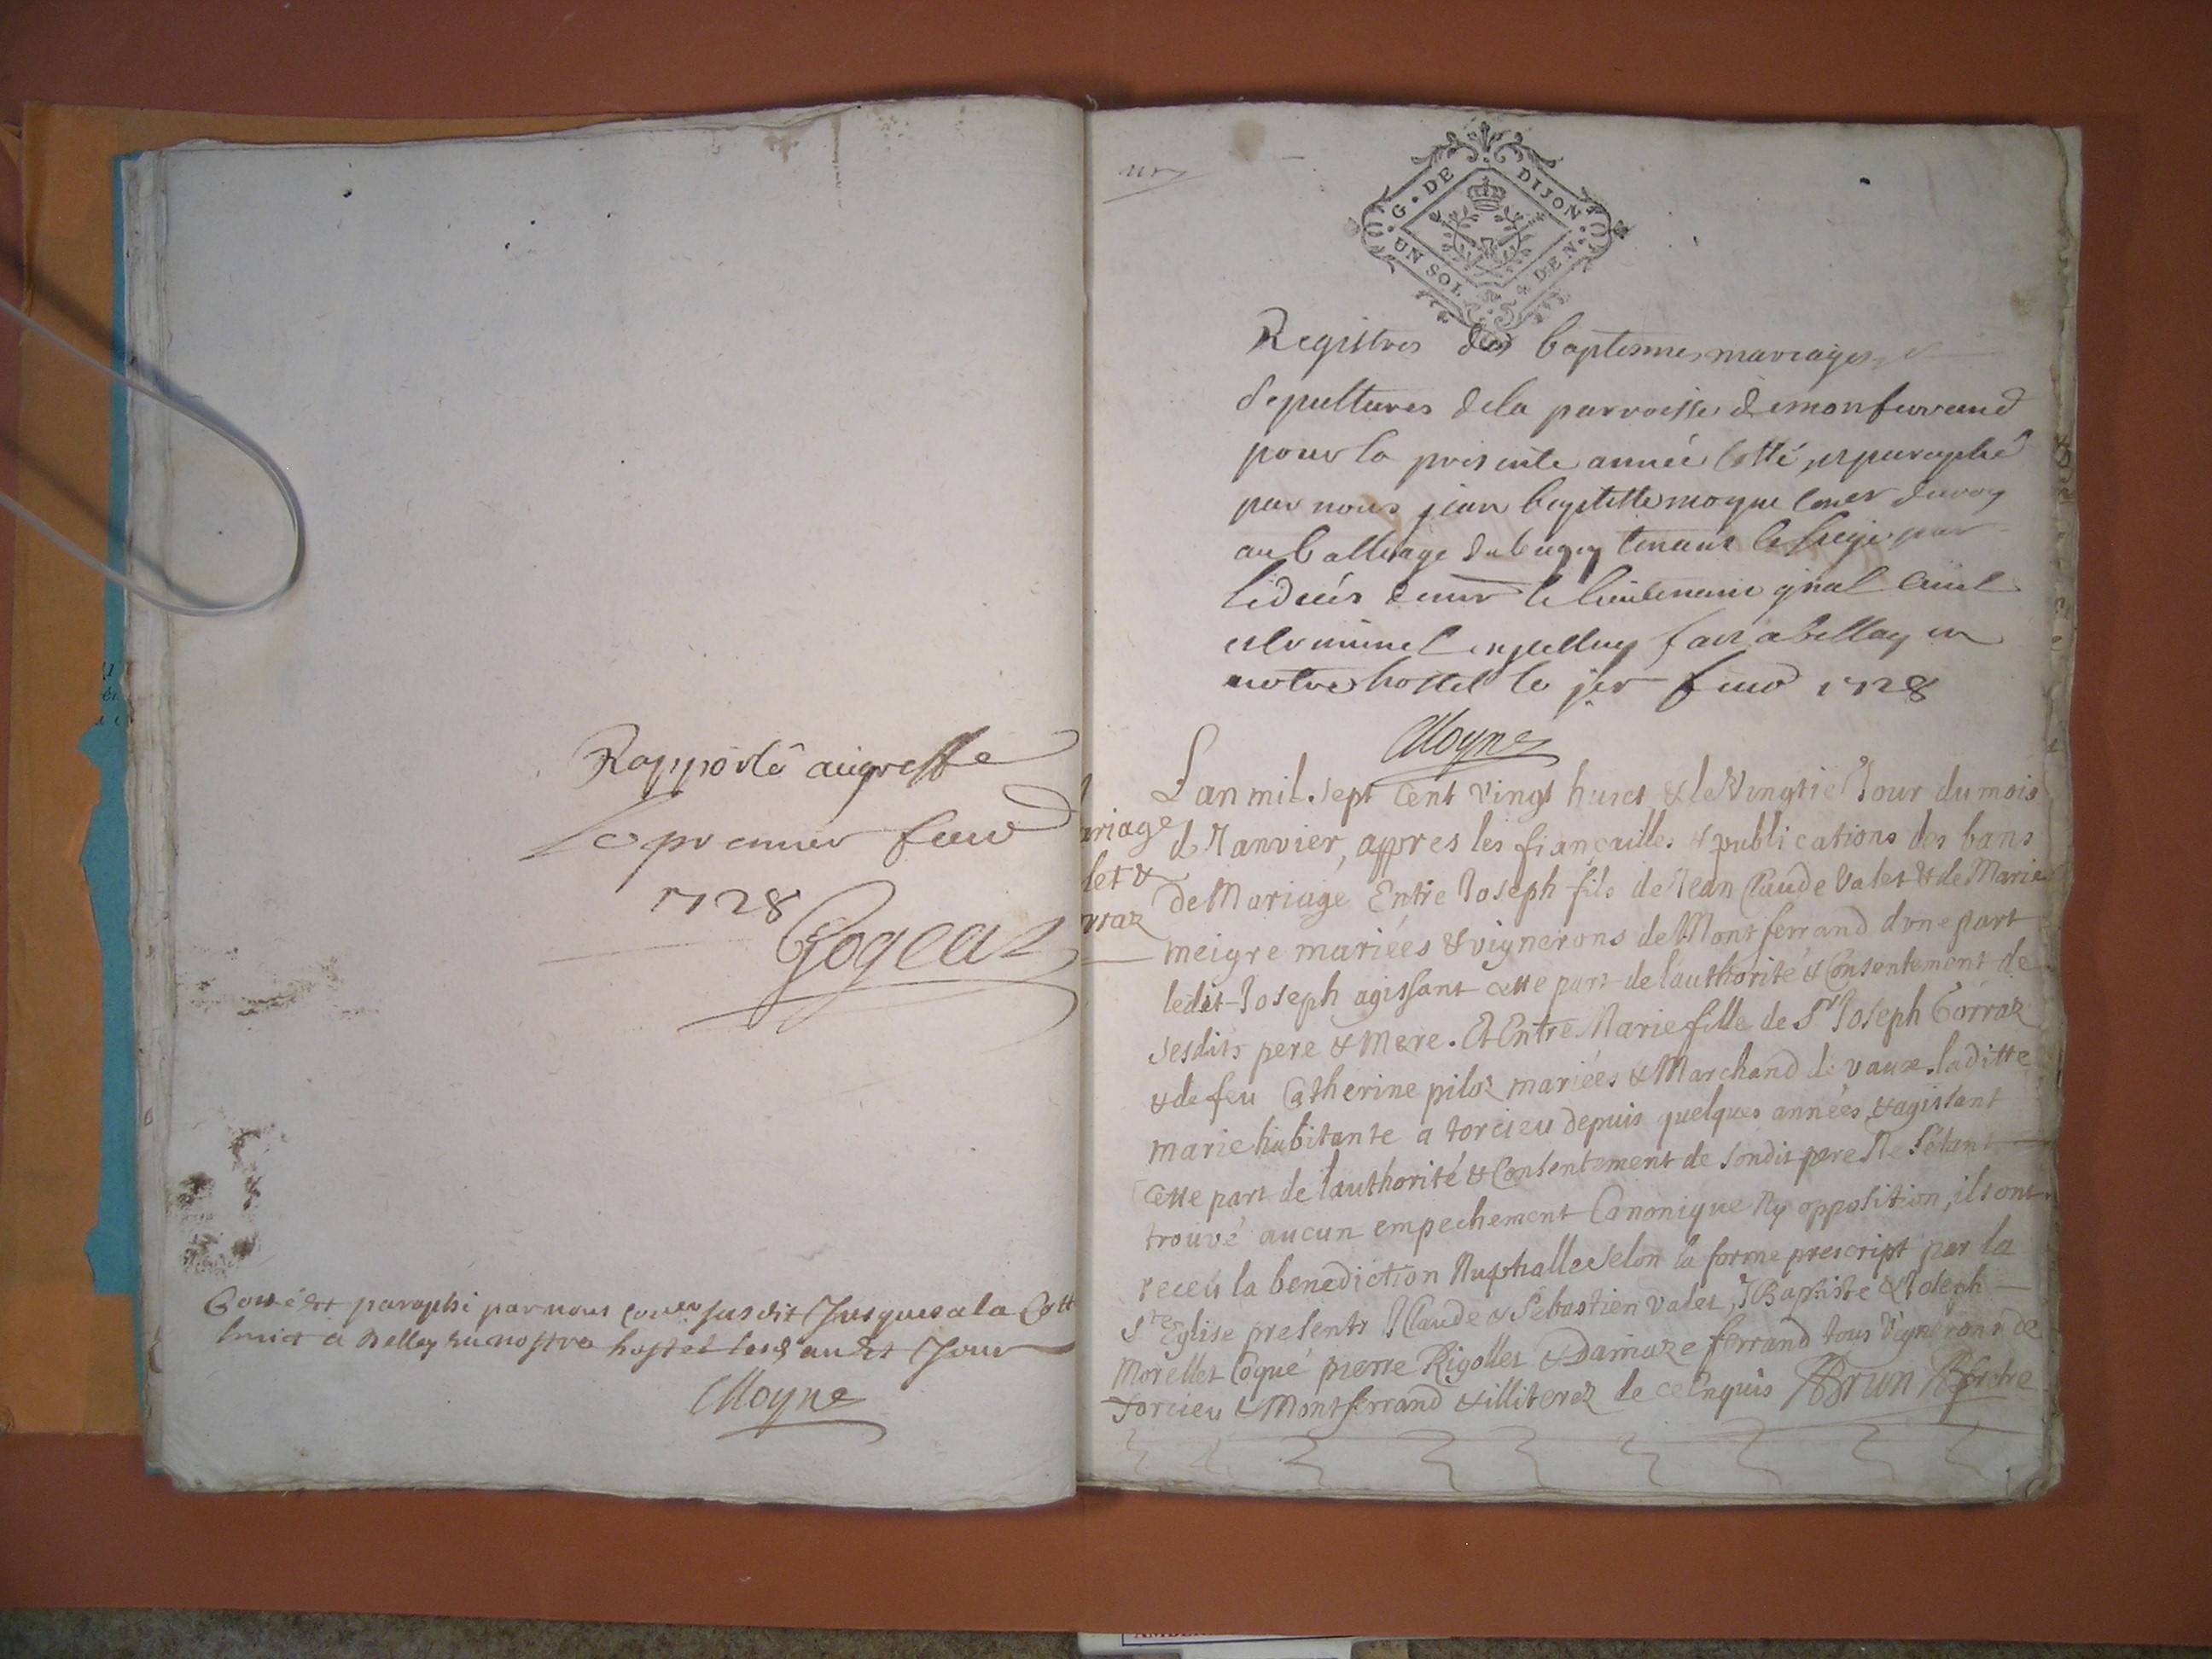 Rapporté au greffe
le premier feuv
1728
Gogeat
Cotté et paraphé par nous Coner susdit Jusques a la Cotte
huict a Belley en nostre hostel lesd an et Jour
Moyne
G. DE DIJON
UN SOL DEN
Registres des baptesmes mariages
sepultures de la parroisse de monferrand
pour la presente année Cotté, et paraphé
par nous jean baptiste moyne Coner du roy
au balliage du bugey tenant le siege par
le deces de mr le lieutenant gnal Civil
et criminel fait a belley en
notre hostel le jer feuv 1728
Moyne
ariage
let &
rraz
L an mil sept Cent vingt huict & le vingtie Jour du mois
de Janvier, appres les fiançailles & publications des bans
de Mariage Entre Joseph fils de Jean Claude Valet & de Marie
meigre mariées & vignerons de Montferrand dvne part
ledit Joseph agissant cette part de l'authorité & Consentement de
sesdits pere & Mere. Et Entre Marie fille de Sr Joseph Corraz
& de feu Catherine piloz mariées & Marchand de vaux. laditte
marie habitante a torcieu depuis quelques années, & agissant
Cette part de l'authorité & Consentement de sondit pere Ne Sétant
trouvé aucun empechement Canonique Ny opposition, ils ont
receu la benediction Nuphalle selon la forme prescript par la
Ste Eglise presents JClaude & Sebastien Valet, JBaptiste & Joseph
Morellet Coque pierre Rigollet & Damaze ferrand tous vignerons de
Torcieu & Montferrand & illiterez de ce Enquis Brun Pbrtre